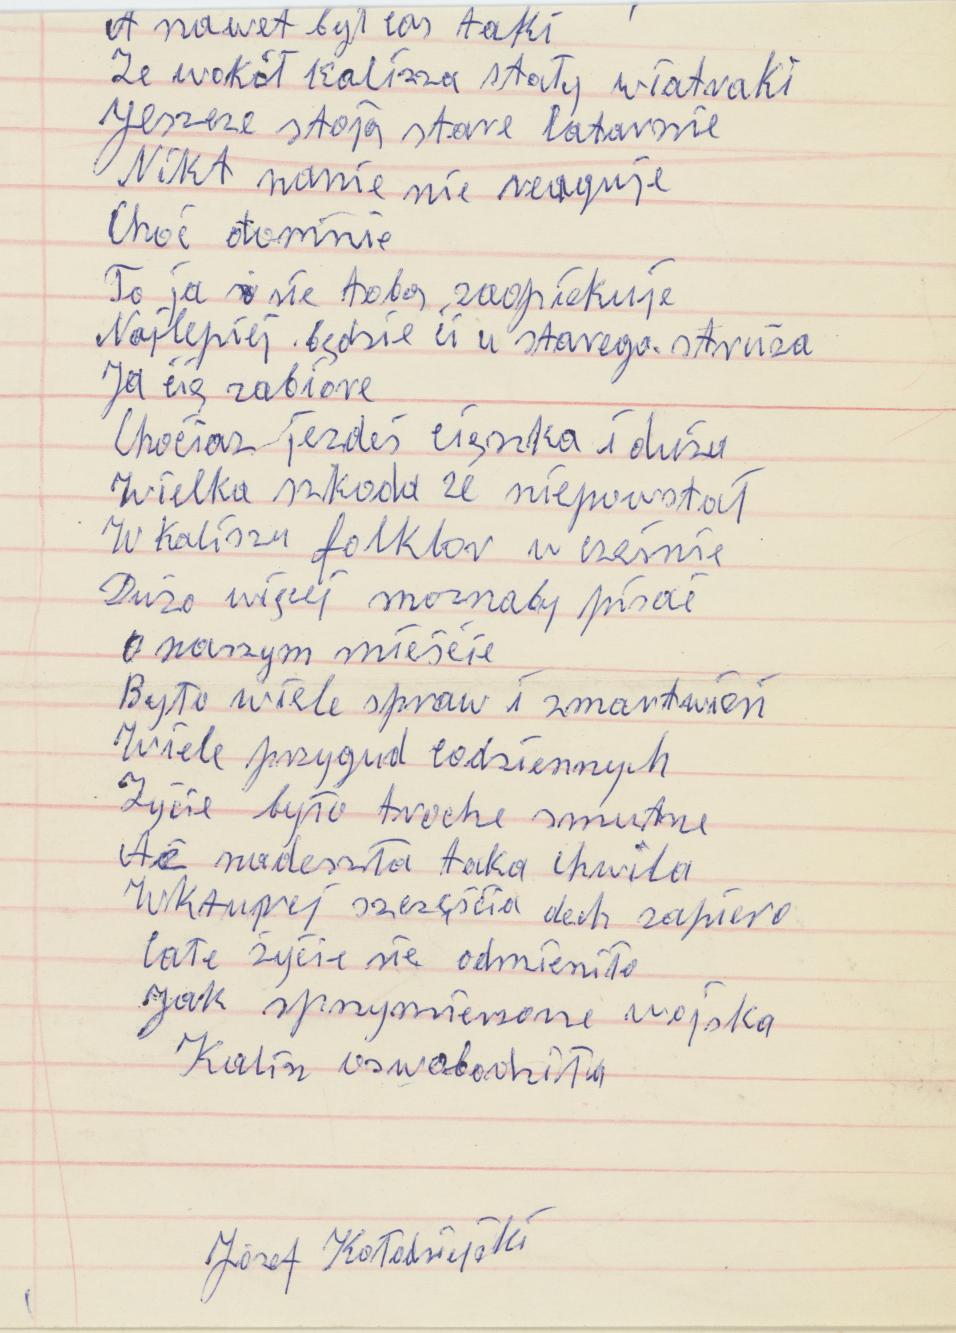 A nawet był czas taki
Że wokół Kalisza stały wiatraki
Jeszcze stoją stare latarnie
Nikt nanie nie reaguje
Choć domnie
To ja sie tobą zaopiekuje
Najlepiej będzie ci u starego struża
Ja cię zabiore
Chociaz jezdeś cięszka i duża
Wielka szkoda że niepowstał
W Kaliszu folklor w cześnie
Dużo więcej moznaby pisać
o naszym mieście
Było wiele spraw i zmartwień
Wiele przygud codziennych
Życie było troche smutne
Aż nadeszła taka chwila
Wkturej szczęścia dech zapiero
Całe życie sie odmieniło
Jak sprzymierzone wojska
Kalisz oswobodziła
Józef Kołodziejski